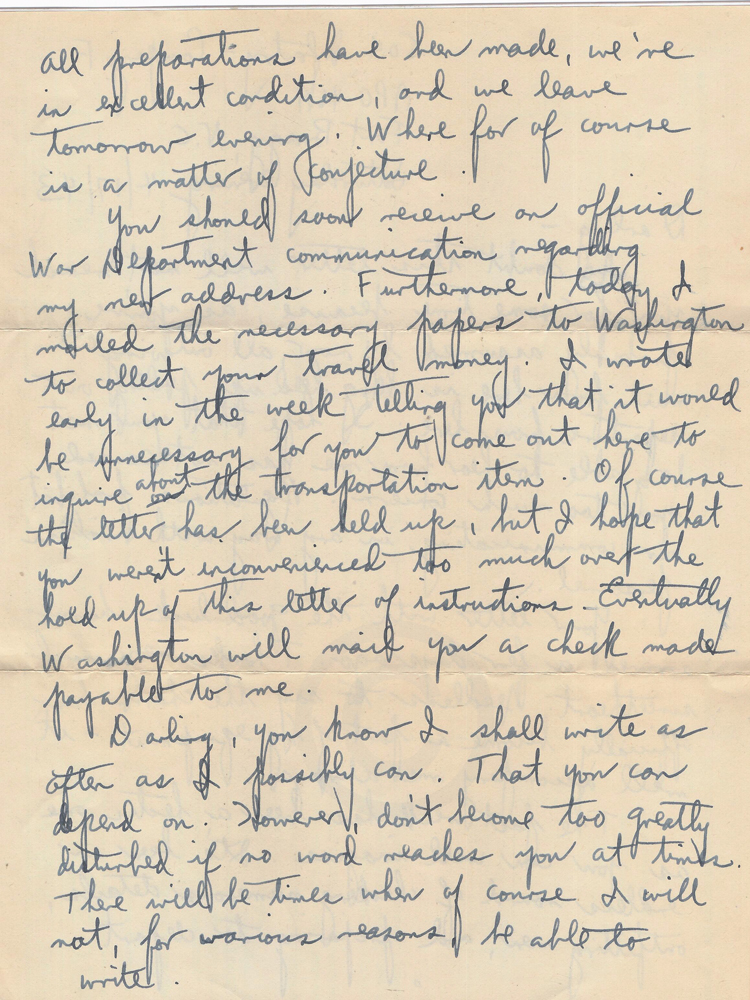 All preparations have been made, we're
in excellent condition, and we leave
tomorrow evening. Where for of course
is a matter of conjecture.
You should soon receive an official
War Department communication regarding
my new address. Furthermore, today I
mailed the necessary papers to Washington
to collect your travel money. I wrote
early in the week telling you that it would
be unnecessary for you to come out here to
inquire about the transportation item. Of course
the letter has been held up, but I hope that
you weren't inconvenienced too much over the
hold up of this letter of instructions. Eventually
Washington will mail you a check made
payable to me.
Darling, you know I shall write as
often as I possibly can. That you can
depend on. However, don't become too greatly
disturbed if no word reaches you at times.
There will be times when of course I will
not, for various reasons, be able to
write.